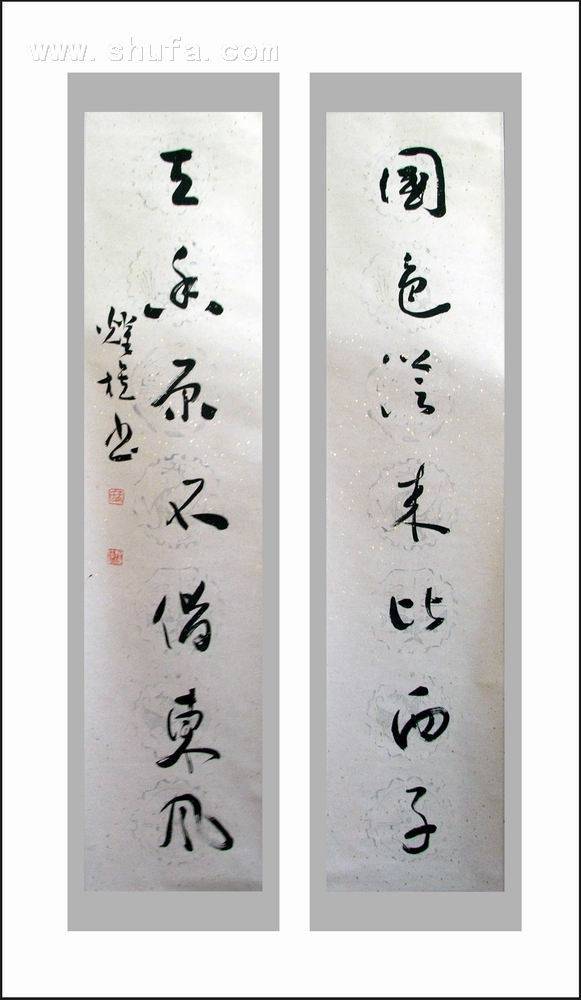 www.shufa.com
國色從來比西子
天香原不借東風
書